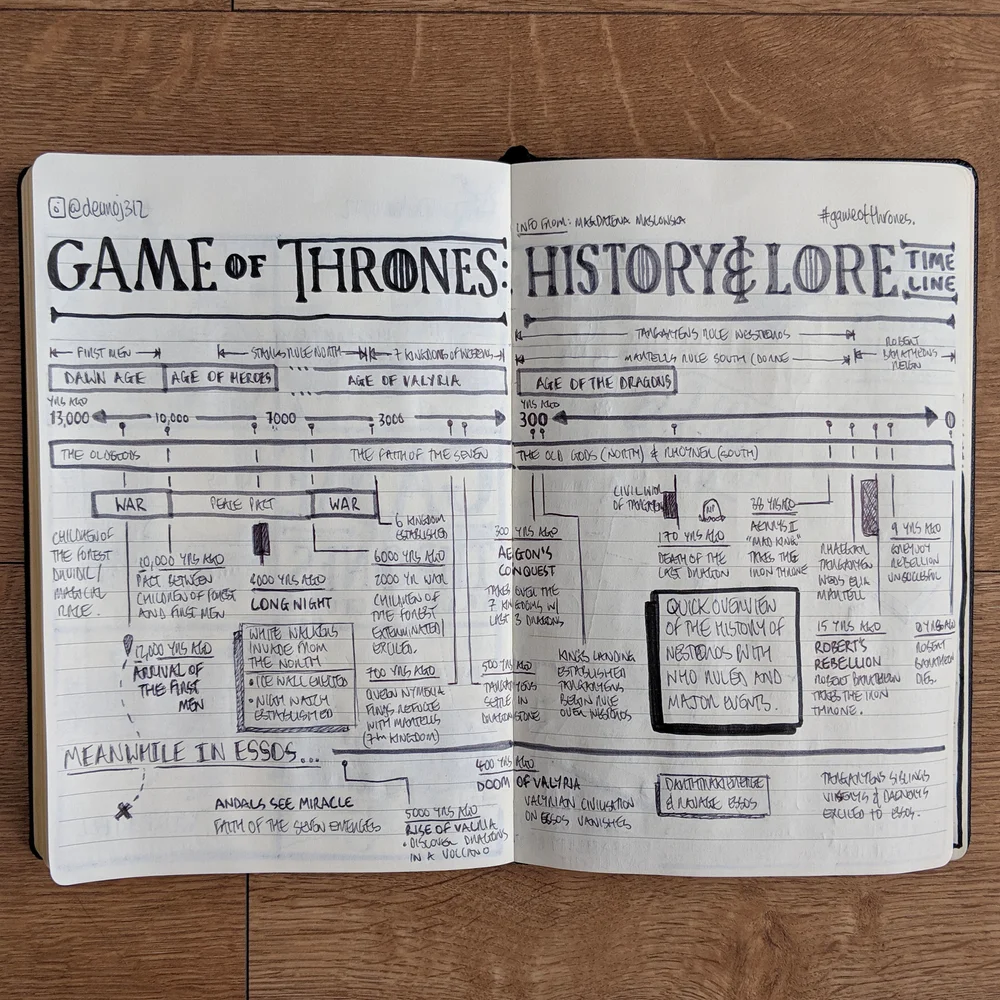 @deanoj312
INFO FROM: MAGDALENA MASLOWSKA
#gameofthrones.
GAME OF THRONES: HISTORY & LORE TIME LINE
FIRST MEN
STARKS RULE NORTH
7 KINGDOMS OF WESTEROS
TARGARYENS RULE WESTEROS
MARTELLS RULE SOUTH (DORNE
ROBERT
BARATHEONS
REIGN
DAWN AGE
AGE OF HEROES
AGE OF VALYRIA
AGE OF THE DRAGONS
YRS AGO
13,000
10,000
7000
3000
YRS AGO
300
0
THE OLD GODS
THE FAITH OF THE SEVEN
THE OLD GODS (NORTH) & RHOYNER (SOUTH)
WAR
PEACE PACT
WAR
CHILDREN OF
THE FOREST
DRUIDIC/
MAGICAL
RACE.
10,000 YRS AGO
PACT BETWEEN
CHILDREN OF FOREST
AND FIRST MEN
12,000 YRS AGO
ARRIVAL OF
THE FIRST
MEN
8000 YRS AGO
LONG NIGHT
WHITE WALKERS
INVADE FROM
THE NORTH
• ICE WALL ERECTED
• NIGHT WATCH
ESTABLISHED
6 KINGDOM
ESTABLISHED
6000 YRS AGO
2000 YR WAR
CHILDREN OF
THE FOREST
EXTERMINATED/
EXILED.
700 YRS AGO
QUEEN NYMERIA
FINDS REFUGE
WITH MARTELLS
(7th KINGDOM)
300 YRS AGO
AEGON'S
CONQUEST
TAKES OVER THE
7 KINGDOMS W/
LAST 3 DRAGONS
500 YRS AGO
TARGARYENS
SETTLE IN
DRAGONSTONE
KINGS LANDING
ESTABLISHED
TARGARYENS
BEGIN RULE
OVER WESTEROS
CIVIL WAR
OF TARGARYEN
RIP
170 YRS AGO
DEATH OF THE
LAST DRAGON
38 YRS AGO
AERYS II
"MAD KING"
TAKES THE
IRON THRONE
RHAEGAR
TARGARYEN
WEDS ELIA
MARTELL
9 YRS AGO
GREYJOY
REBELLION
UNSUCCESSFUL
QUICK OVERVIEW
OF THE HISTORY OF
WESTEROS WITH
WHO RULED AND
MAJOR EVENTS.
15 YRS AGO
ROBERT'S
REBELLION
ROBERT BARATHEON
TAKES THE IRON
THRONE.
0 YRS AGO
ROBERT
BARATHEON
DIES.
MEANWHILE IN ESSOS...
ANDALS SEE MIRACLE
FAITH OF THE SEVEN EMERGES
5000 YRS AGO
RISE OF VALYRIA
• DISCOVER DRAGONS
IN A VOLCANO
400 YRS AGO
DOOM OF VALYRIA
VALYRIAN CIVILISATION
ON ESSOS VANISHES
DOTHRAKI EMERGE
& RAVAGE ESSOS
TARGARYENS SIBLINGS
VISERYS & DAENERYS
EXCILED TO ESSOS.